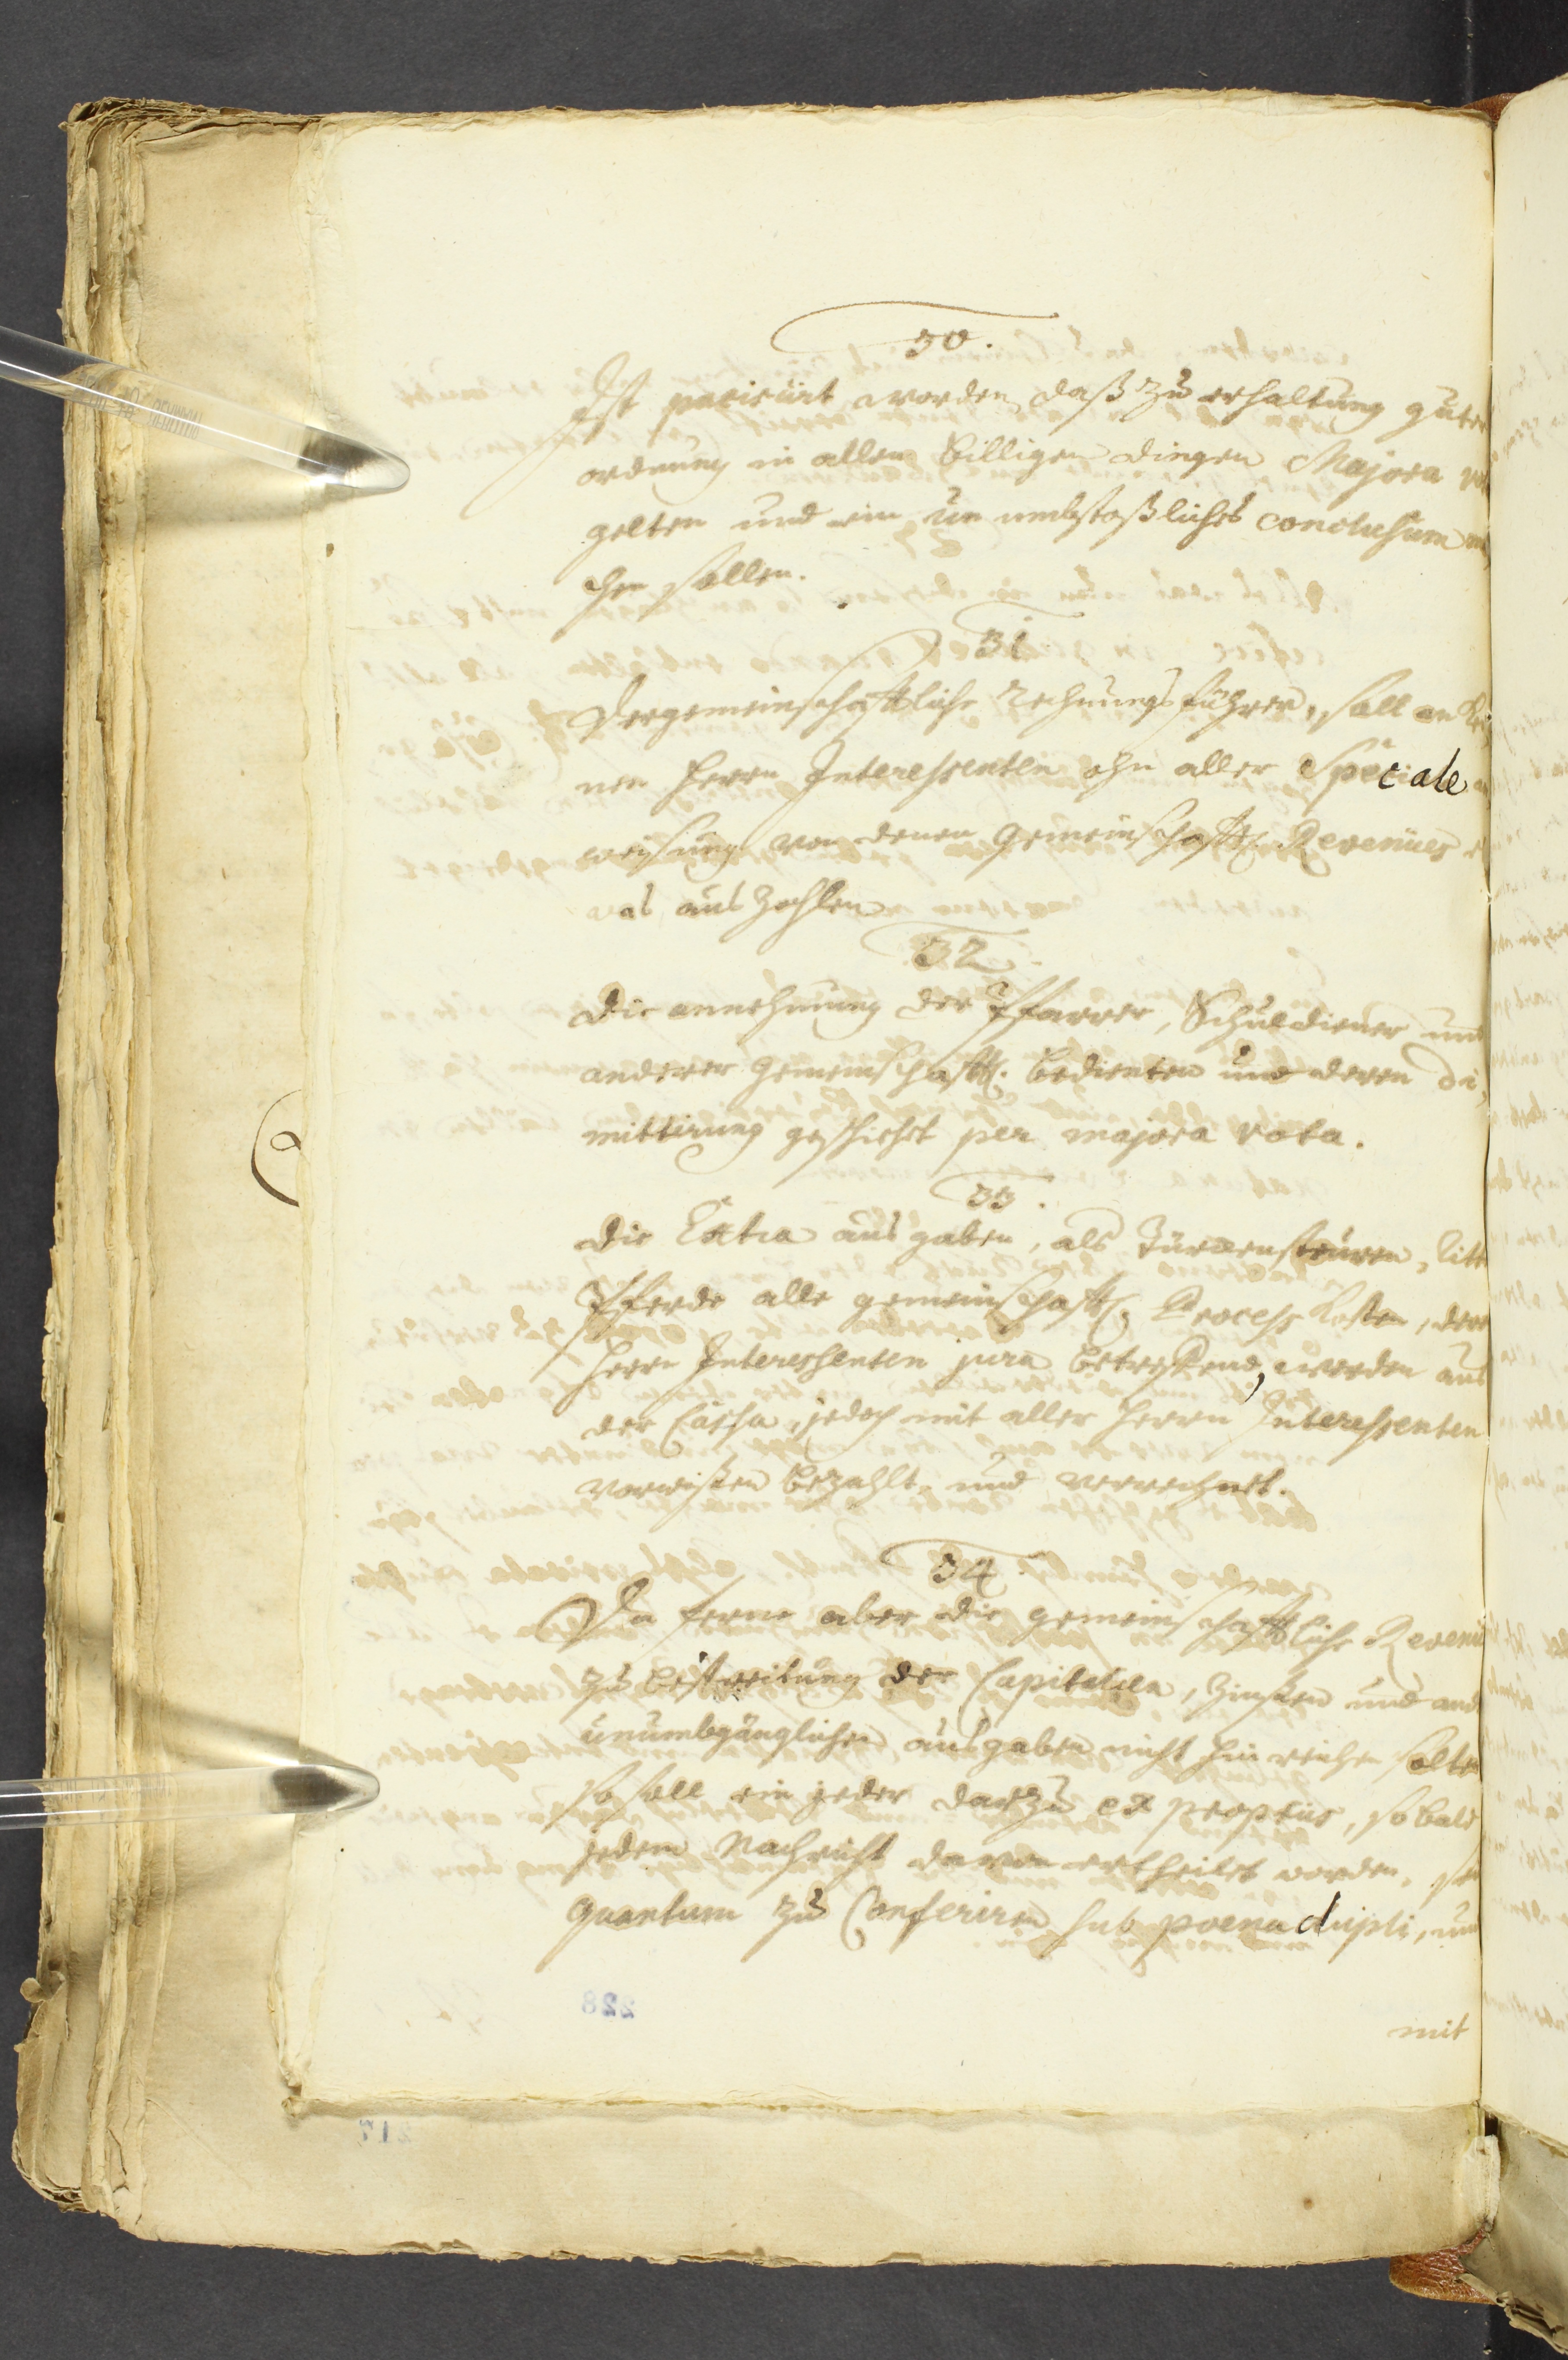 30.
Ist paciscirt worden, daß zu erhaltung guter
ordnung in allen billigen dingen Majora
gelten und ein un umbstoßliches conclusum
chen sollen.
31
Der gemeinschafftliche Rechnungsführer, soll an
nen Herrn Interessenten ohn aller Speciale
weisung von denen gemeinschafftl. Revenües
was auszahlen
32
Die annehmung der Pfarrer, Schuldiener und
anderer gemeinschafftl. bedienten und deren di,
mittirung geschiehet per majora vota.
33.
Die Extra ausgaben, als Türckensteuren,
Pferde alle gemeinschafftl. Process Kosten, derer
Herrn Interessenten jura betreffend, werden aus
der Cassa, jedoch mit aller Herrn Interessenten
vorwißen bezahlt, und verrechnet.
34.
Da ferne aber die gemeinschafftliche
zu bestreitung der Capitalien, Zinßen und
unumbgänglichen ausgaben nicht hin reichen solten
so soll ein jeder darzu ex propriis, so bald
jedem Nachricht davon ertheilet worden,
quantum zu Conferiren sub poena dupli,
mit
228
217